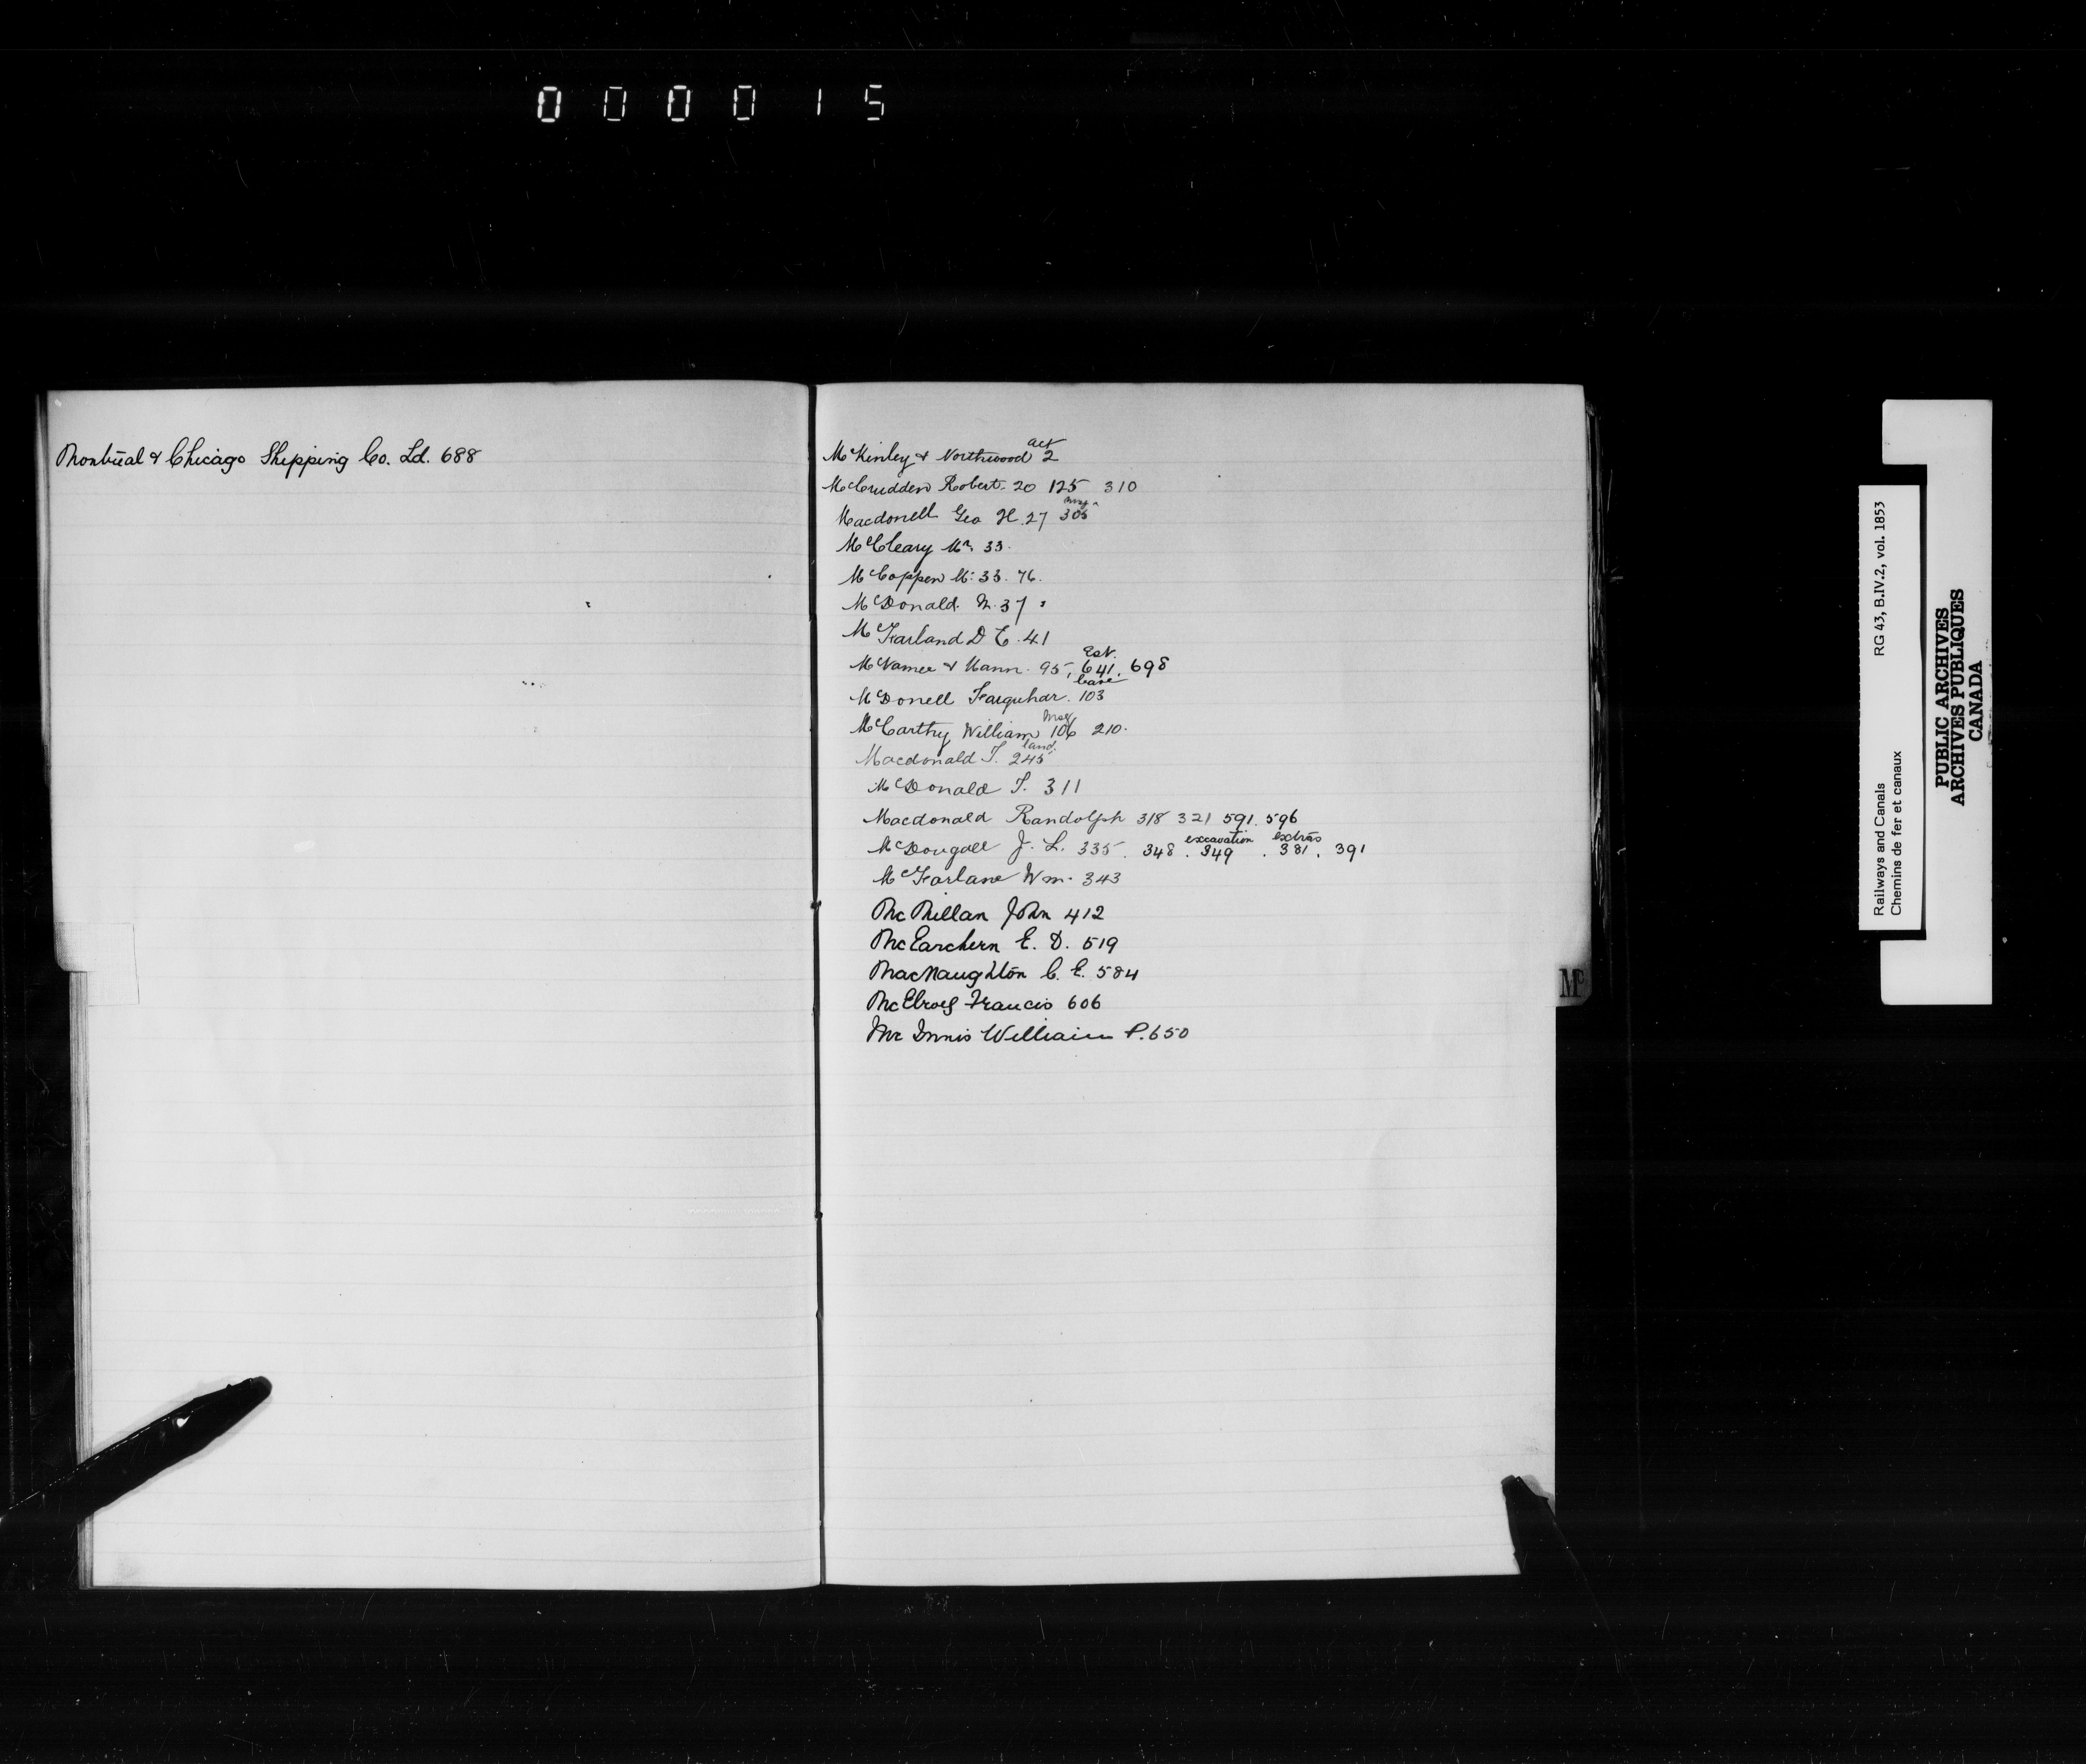 000015
Montreal & Chicago Shipping Co. Ld. 688
act
McKinley & Northwood 2
McCrudden Robert. 20 125 310
Macdonell Geo H. 27 305
McCleary Mr. 33.
McCoppen M: 33. 76.
McDonald. 37
McFarland D C. 41
Est.
McNamee & Mann. 95, 641, 698
lease
McDonell Farquhar. 103
Msg
McCarthy William 106 210.
land.
Macdonald T. 245
McDonald T. 311
Macdonald Randolph 318 321 591. 596
excavation extras
McDougall J. L. 335. 348. 349. 381. 391
McFarlane Wm. 343
McMillan John 412
McEarchern E. D. 519
MacNaughton C. E. 584
McElroy Francis 606
McInnis William P. 650
Mc
Railways and Canals RG 43, B.IV.2, vol. 1853
Chemins de fer et canaux
PUBLIC ARCHIVES
ARCHIVES PUBLIQUES
CANADA